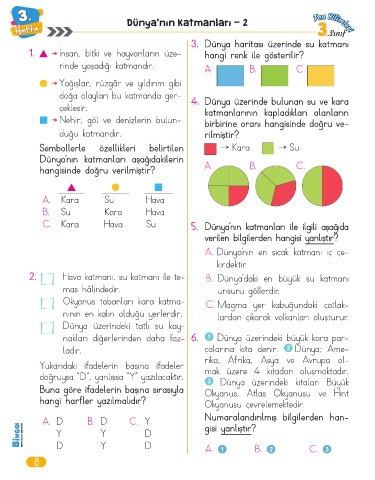 3.
Hafta
Dünya'nın Katmanları – 2
Fen Bilimleri
3. Sınıf
1. ▲ → İnsan, bitki ve hayvanların üze-
rinde yaşadığı katmandır.
● → Yağışlar, rüzgâr ve yıldırım gibi
doğa olayları bu katmanda ger-
çekleşir.
■ → Nehir, göl ve denizlerin bulun-
duğu katmandır.
Sembollerle özellikleri belirtilen
Dünya'nın katmanları aşağıdakilerin
hangisinde doğru verilmiştir?
▲ ● ■
A. Kara Su Hava
B. Su Kara Hava
C. Kara Hava Su
2. Hava katmanı, su katmanı ile te-
mas hâlindedir.
Okyanus tabanları kara katma-
nının en kalın olduğu yerlerdir.
Dünya üzerindeki tatlı su kay-
nakları diğerlerinden daha faz-
ladır.
Yukarıdaki ifadelerin başına ifadeler
doğruysa "D", yanlışsa "Y" yazılacaktır.
Buna göre ifadelerin başına sırasıyla
hangi harfler yazılmalıdır?
A. D B. D C. Y
Y Y D
D Y D
BİNGÖL
8
3. Dünya haritası üzerinde su katmanı
hangi renk ile gösterilir?
A. B. C.
4. Dünya üzerinde bulunan su ve kara
katmanlarının kapladıkları alanların
birbirine oranı hangisinde doğru ve-
rilmiştir?
→ Kara → Su
A. B. C.
5. Dünya'nın katmanları ile ilgili aşağıda
verilen bilgilerden hangisi yanlıştır?
A. Dünyanın en sıcak katmanı iç çe-
kirdektir.
B. Dünya'daki en büyük su katmanı
unsuru göllerdir.
C. Magma yer kabuğundaki çatlak-
lardan çıkarak volkanları oluşturur.
6. 1 Dünya üzerindeki büyük kara par-
çalarına kıta denir. 2 Dünya; Ame-
rika, Afrika, Asya ve Avrupa ol-
mak üzere 4 kıtadan oluşmaktadır.
3 Dünya üzerindeki kıtaları Büyük
Okyanus, Atlas Okyanusu ve Hint
Okyanusu çevrelemektedir.
Numaralandırılmış bilgilerden han-
gisi yanlıştır?
A. 1 B. 2 C. 3